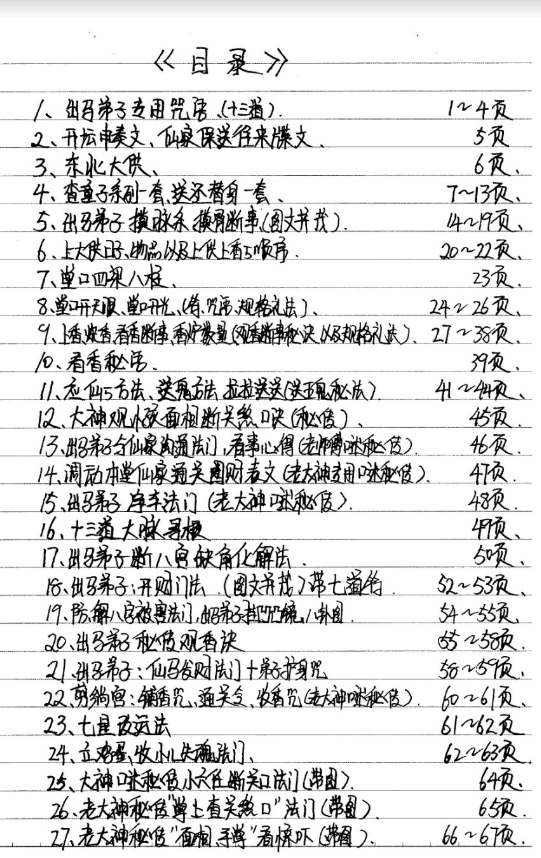 《目录》
1、出马弟子专用咒语(十三道). 1~4页
2、开坛申表文、仙家保送往来牒文. 5页
3、东北大供、 6页、
4、查童子系列一套、送还替身一套、 7~13页、
5、出马弟子摸脉条、摸骨断事(图文并茂). 14~19页、
6、上大供日子、物品以及上供上香的顺序. 20~22页、
7、堂口四梁八柱、 23页、
8、堂口开天眼、堂口开光、(符、咒语、规格礼法)、 24~26页、
9、上香、看香断事、香炉数量(观香断事秘诀以及规格礼法). 27~38页、
10、看香秘语. 39页、
11、应仙的方法、送鬼方法、(送鬼秘法). 41~44页、
12、大神观小孩面相断关煞口诀(秘传)、 45页、
13、出马弟子与仙家沟通法门、看事心得(老师傅口述秘传). 46页、
14、调动本堂仙家通关圆财表文(老大神专用口述秘传). 47页、
15、出马弟子法门(老大神口述秘传). 48页、
16、十三道大脉 49页、
17、出马弟子断八字缺角化解法. 50页、
18、出马弟子:开财门法.(图文并茂)带七道符. 52~53页、
19、八字被害法门、出马弟子、八卦图 54~55页、
20、出马弟子秘传观香诀 55~58页、
21、出马弟子:仙马发财法门+弟子护身咒 58~59页、
22、铺香咒、通关令、收香咒(老大神口述秘传). 60~61页、
23、七星改运法 61~62页
24、立鸡蛋、收小儿失魂法门、 62~63页、
25、大神口述秘传小六壬断关口法门(带图). 64页、
26、老大神秘传"掌上查关煞口"法门(带图). 65页、
27、老大神秘传"面相、手掌"看惊吓(带图)、 66~67页、